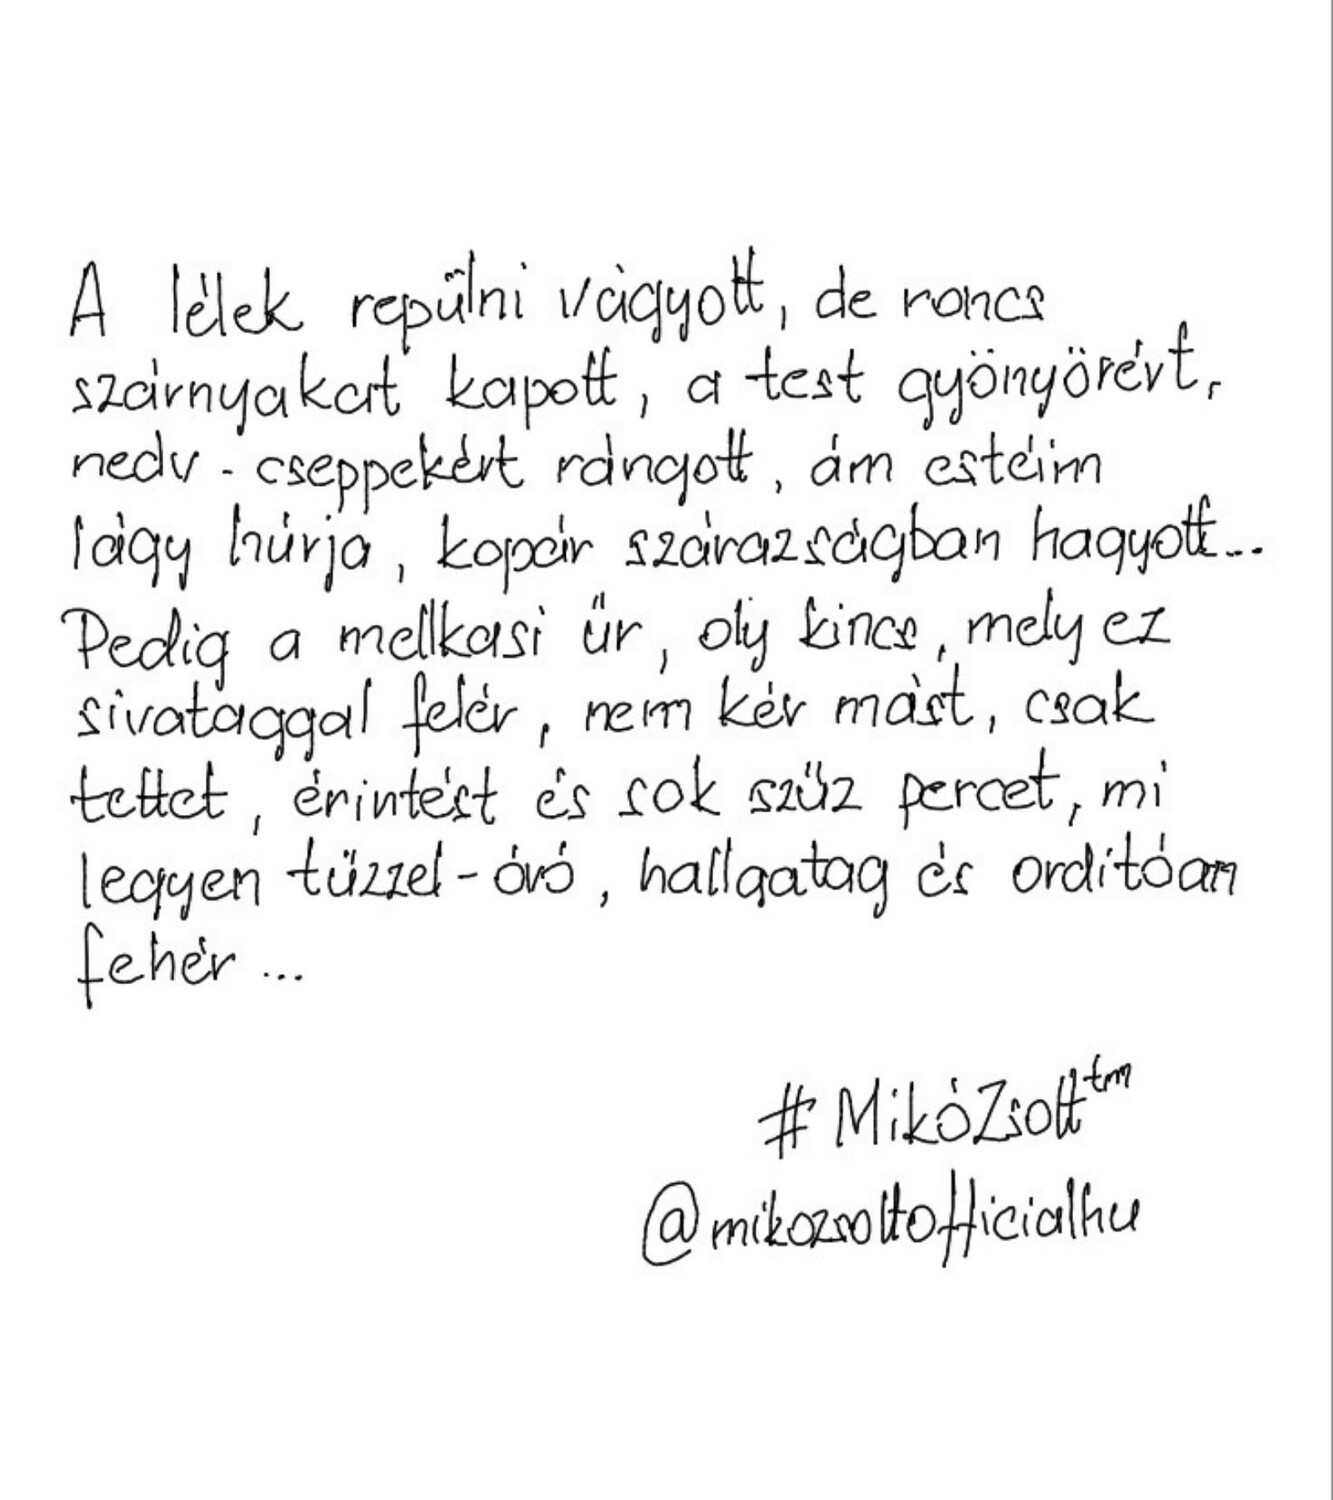 A lélek repülni vágyott, de roncs
szárnyakat kapott, a test gyönyörért,
nedv-cseppekért rángott, ám estéim
lágy húrja, kopár szárazságban hagyott...
Pedig a mellkasi űr, oly kincs, mely ez
sivataggal felér, nem kér mást, csak
tettet, érintést és sok szűz percet, mi
legyen tűzzel-óvó, hallgatag és ordítóan
fehér...
#MikóZsolt™
@mikozsoltofficialhu